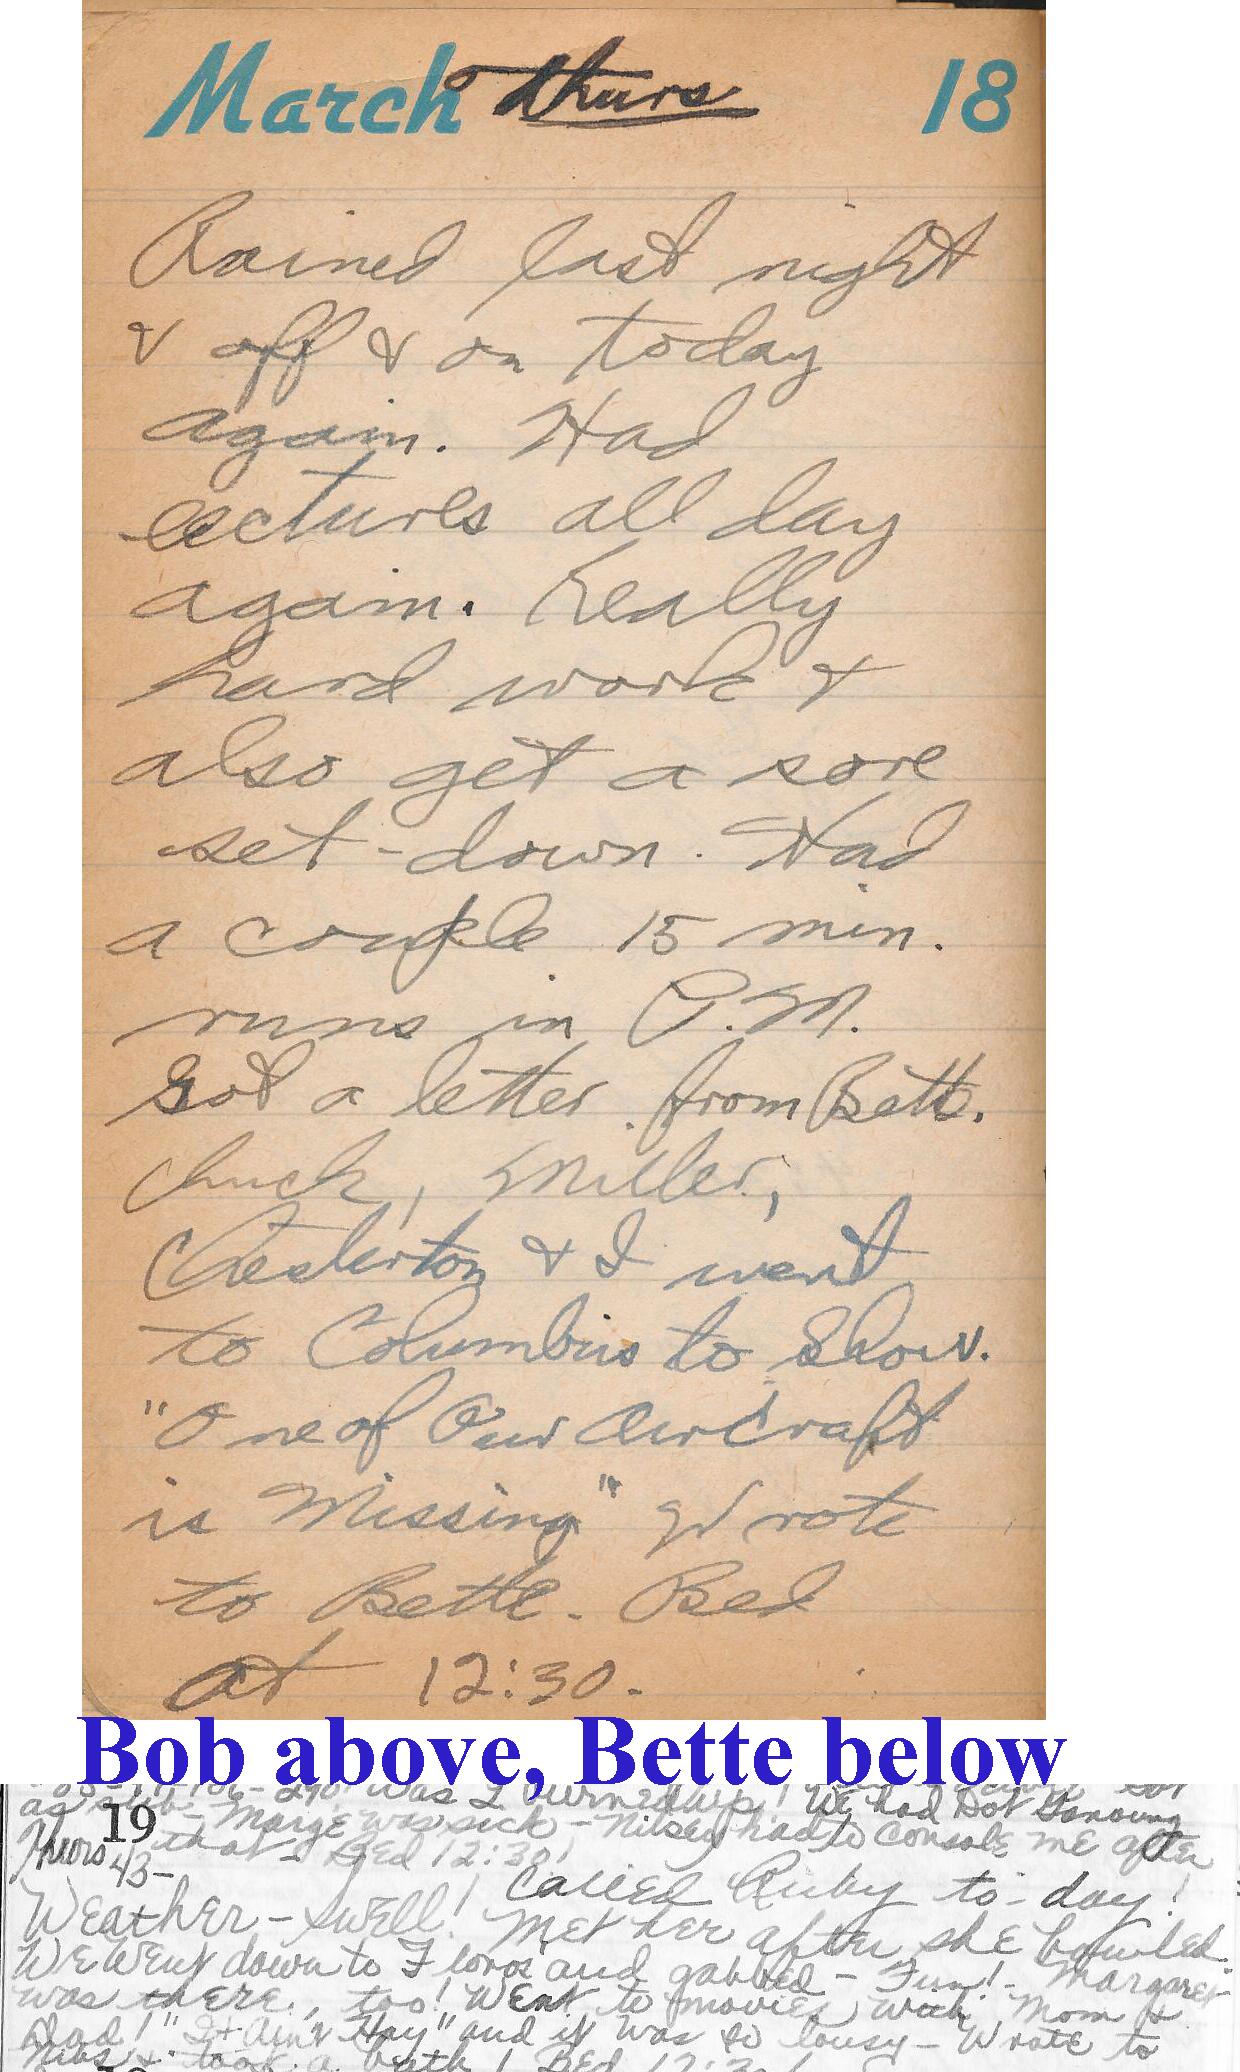 March Thurs 18
Rained last night
& off & on today
again. Had
lectures all day
again. Really
hard work &
also get a sore
set-down. Had
a couple 15 min.
runs in P.M.
Got a letter from Bette.
Chuck, Miller,
Chesterton & I went
to Columbus to Show.
"One of Our Aircraft
is Missing" Wrote
to Bette. Bed
at 12:30.
Bob above, Bette below
Was I burned up! We had Dot
as sub - Marge was sick - had to console me after
19
Thurs that - Bed 12:30!
43-
Called Ruby to-day!
Weather - Swell! Met her after she bowled.
We went down to and gabbed - Fun! - Margaret
was there, too! Went to movies with Mom &
Dad! "It Ain't Hay" and it was so lousy - Wrote to
& took a bath! Bed 12:30!